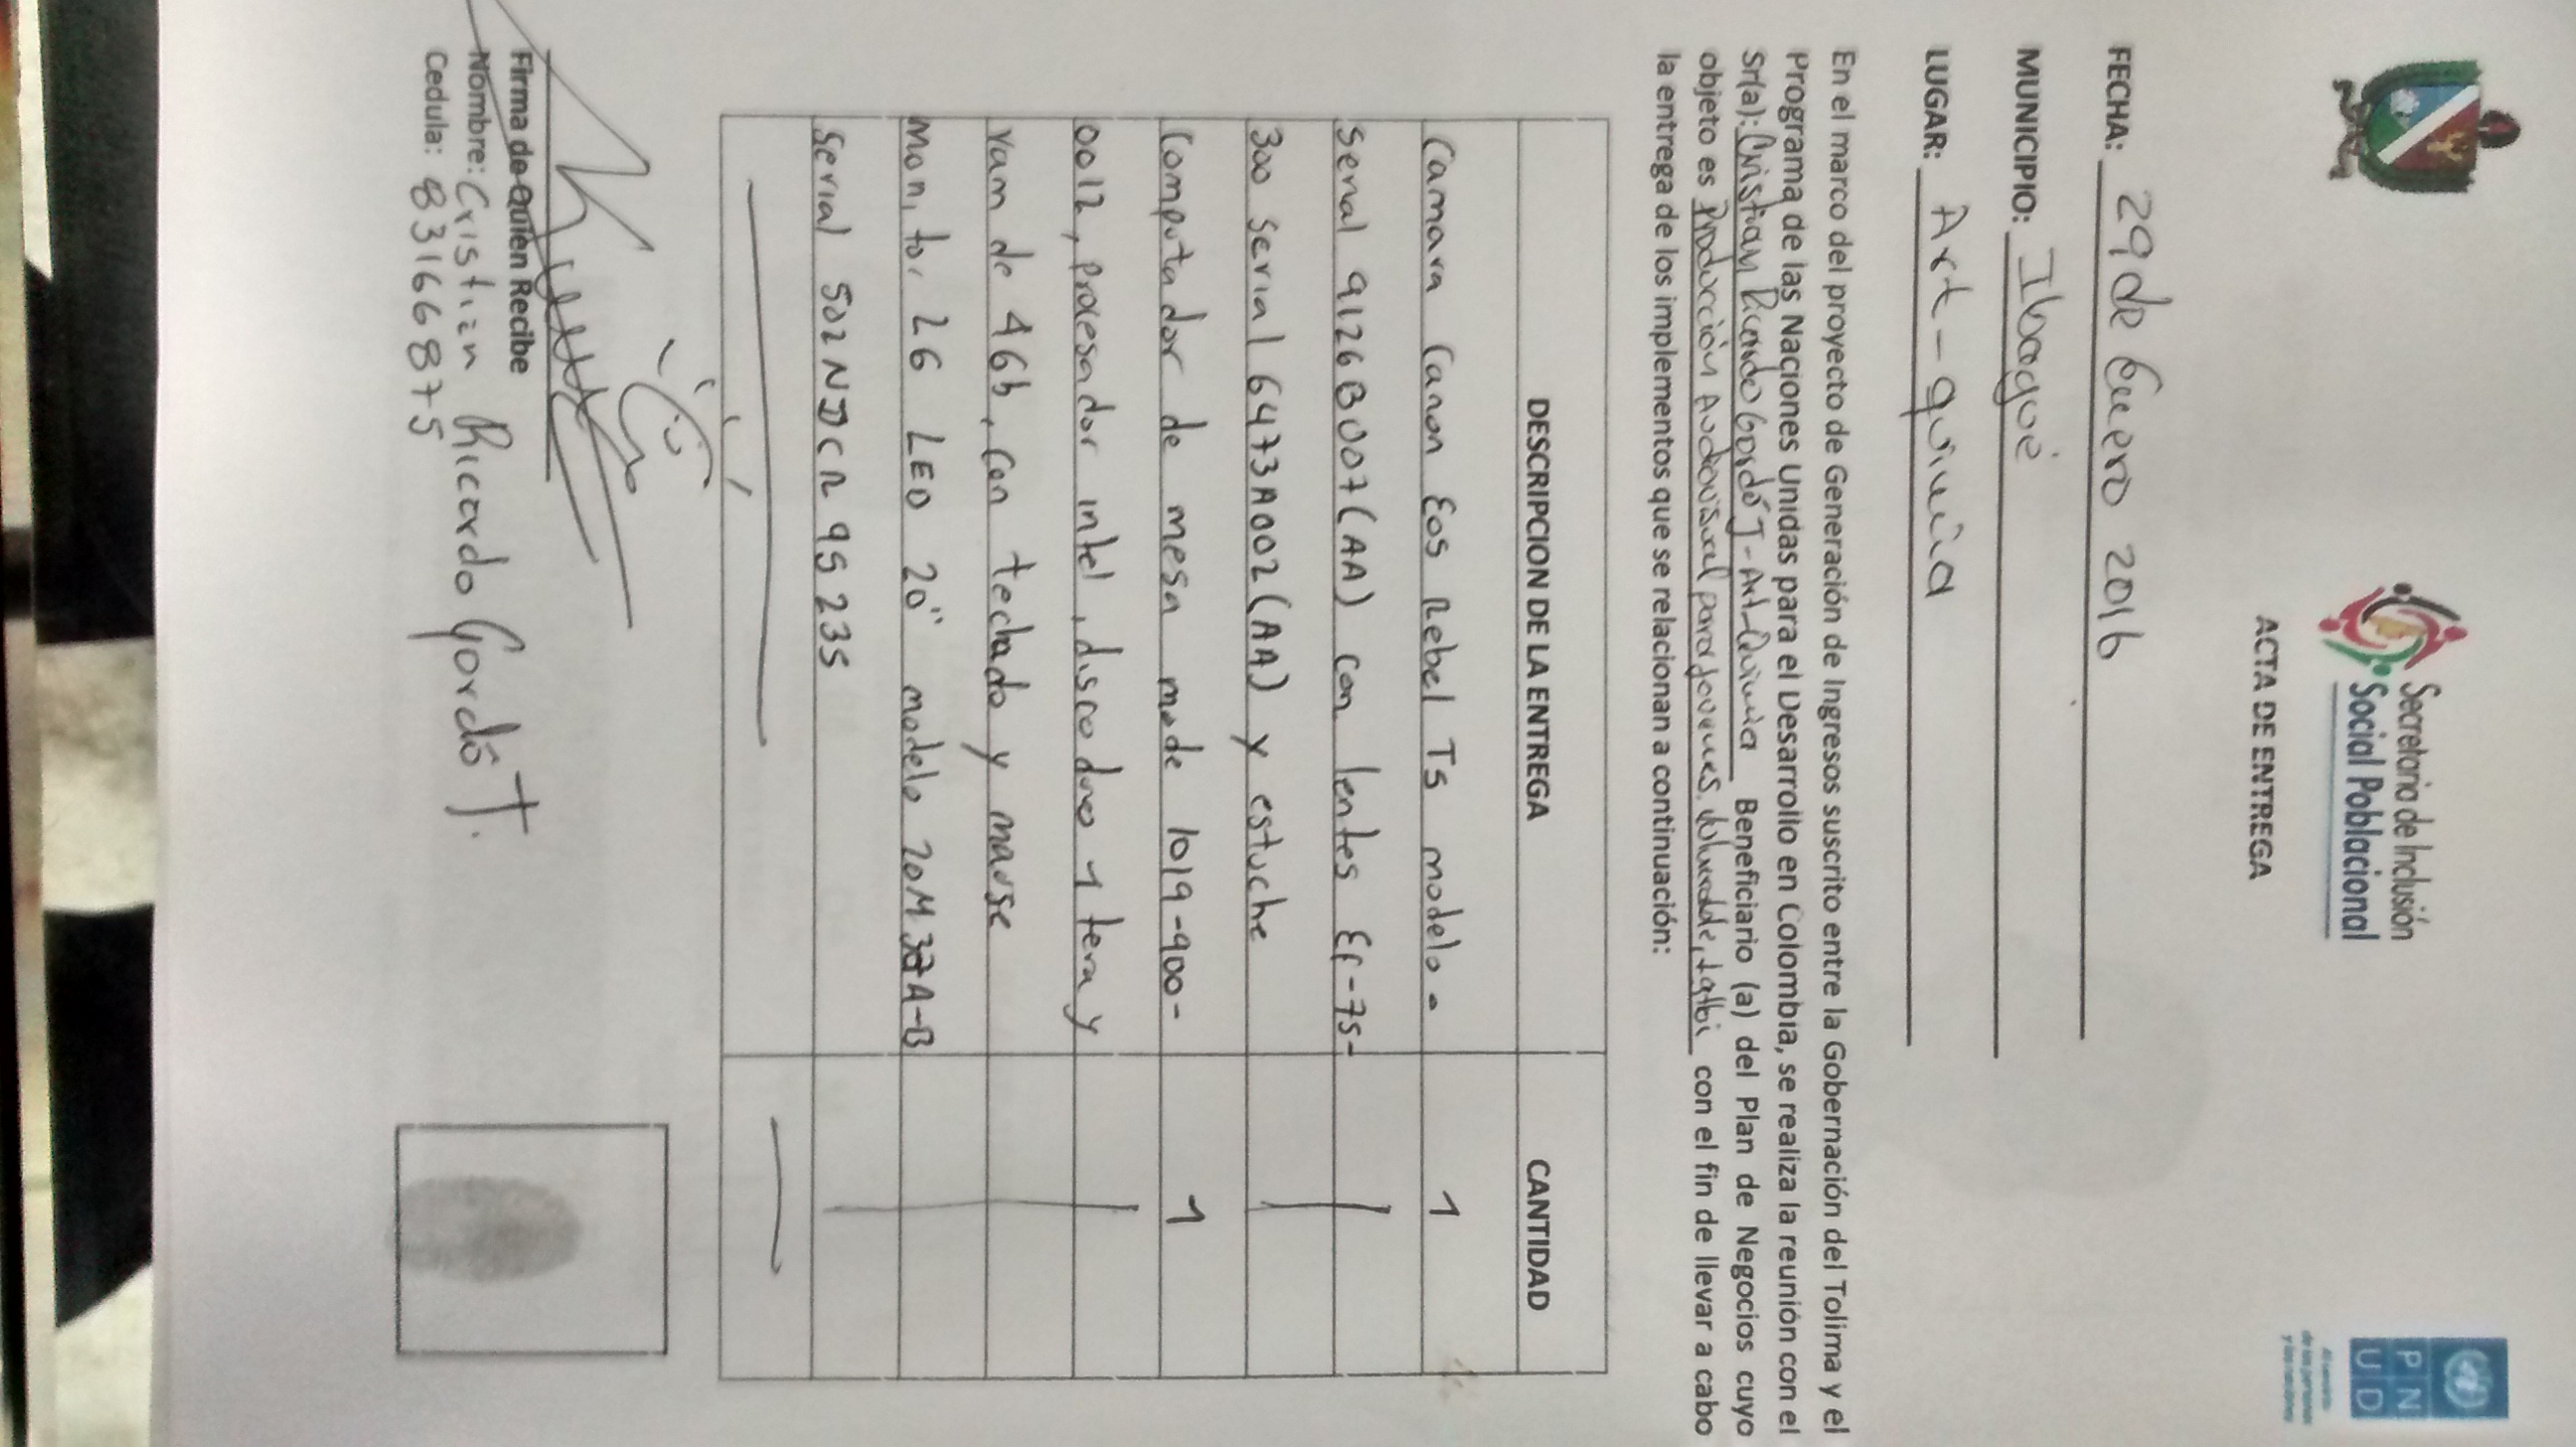 Secretaria de Inclusión
Social Poblacional
PNUD
ACTA DE ENTREGA
FECHA: 29 de Enero 2016
MUNICIPIO: Ibagué
LUGAR: Art-quimia
En el marco del proyecto de Generación de Ingresos suscrito entre la Gobernación del Tolima y el
Programa de las Naciones Unidas para el Desarrollo en Colombia, se realiza la reunión con el
Sr(a): Cristian Ricardo Gordó T-Art-Quimia Beneficiario (a) del Plan de Negocios cuyo
objeto es Producción Audiovisual para Jovenes con el fin de llevar a cabo
la entrega de los implementos que se relacionan a continuación:
DESCRIPCION DE LA ENTREGA CANTIDAD
Camara Canon Eos Rebel T5 modelo- 1
serial 9126B007(AA) con lentes Ef-75-
300 serial 6473A002(AA) y estuche
Computador de mesa mode 1019-900- 1
0012, procesador intel, disco duro 1 tera y
ram de 4Gb, con teclado y mause
monitor LG LED 20" modelo 20M37A-B
Serial 502NDCR9S235
Firma de Quien Recibe
Nombre: Cristian Ricardo Gordó T.
Cedula: 83166875